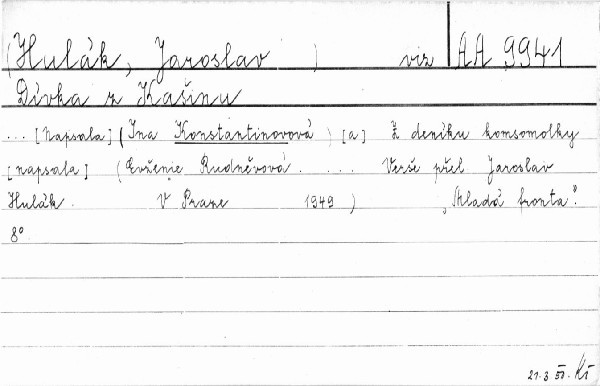 (Hulák, Jaroslav ) viz AA 9941
Dívka z Kašinu
... [Napsala] (Ina Konstantinovová) [a] Z deníku komsomolky
[napsala] (Evženie Rudněvová. ... Verše přel Jaroslav
Hulák. V Praze 1949) „Mladá fronta“.
8°
21.3 51. Kř